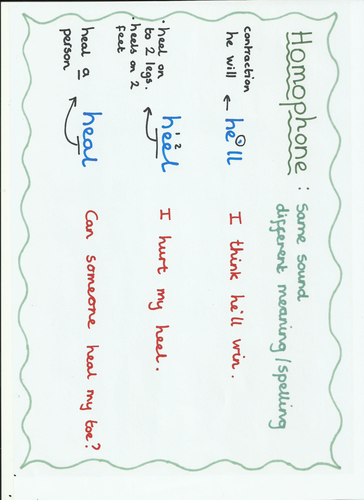 Homophone : Same sound
different meaning/spelling
contraction
he will
he'll
I think he'll win.
• heal on
to 2 legs.
• heels on 2
feet
1 2
heel
I hurt my heel.
heal a
person
heal
Can someone heal my toe?